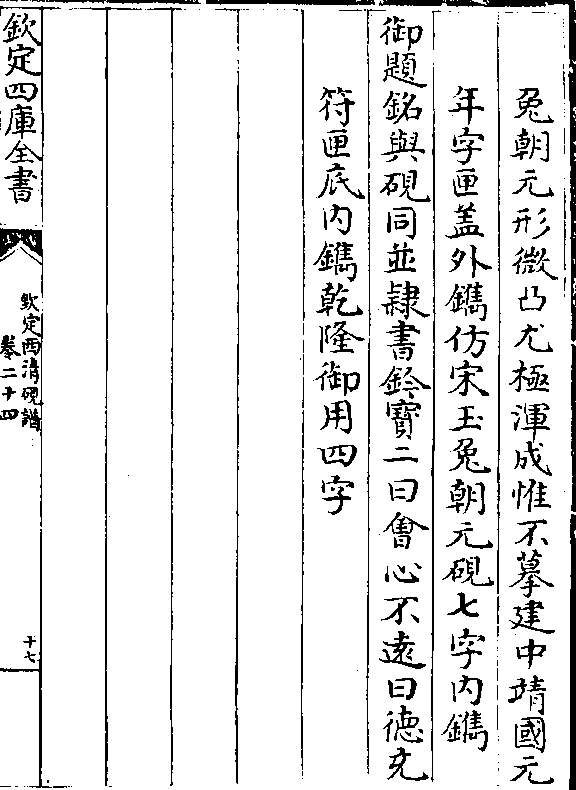 兔朝元形微凸尤極渾成惟不摹建中靖國元
年字匣盖外鐫仿宋玉兔朝元硯七字内鐫
御題銘與硯同並隸書鈐寶二曰㑹心不遠曰德充
符匣底内鐫乾隆御用四字
欽定四庫全書
欽定西清硯譜
卷二十四
十七